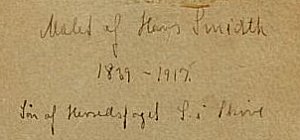 Malet af Hans Smidth
1839 - 1917.
Søn af Herredsfoged S. i Skive